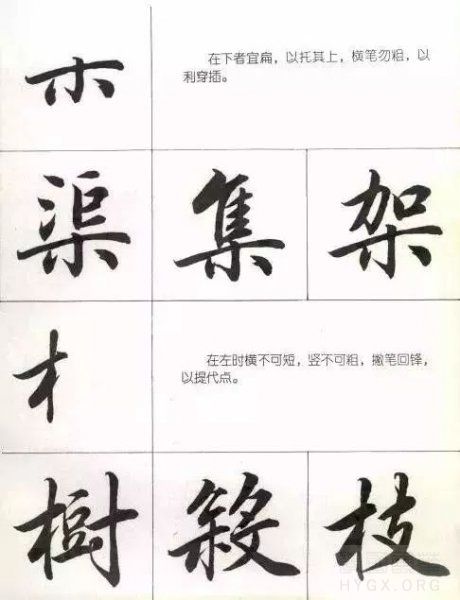 朩
在下者宜扁，以托其上，横笔勿粗，以
利穿插。
渠 集 架
在左时横不可短，竖不可粗，撇笔回锋，
以提代点。
樹 枝
HYGX.ORG